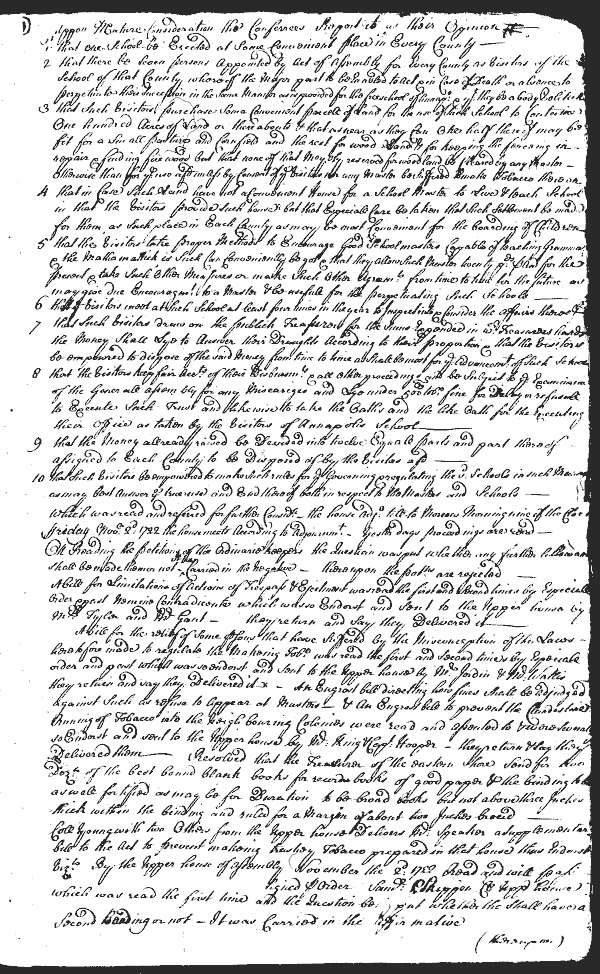 Uppon Mature Consideration the Conferees Report it as their Opinion
1 that one School be Erected at Some Convenient place in Every County
2 that there be seven persons Appointed by Act of Assembly for Every County as Visitors of the
School of that County whereof the Major part to be Enabled to Act in Case of Death or absence to
perpetuate their Succession in the Same Manner as is provided for the freeschool of Annap. & yt they be a body Politick
3 that Such Visitors purchase Some Convenient parcele of Land for the use of their School to Contein
One hundred Acres of Land or thereabouts & that as near as they Can One half thereof may be
fit for a Small pasture and Cornfield and the rest for wood Land for keeping the fencing in
repair & finding fire wood but that none of that may be Cleared by any Master
Otherwise than for Consent of ye Visitors nor any Master be Suffered to make Tobacco thereon
4 that in Case Such Land have not a Convenient House for a School Master to Live & teach School
in that the Visitors provide such house & but that Especiall Care be taken that Such Settlement be made
for them, as Such place in Each County as may be most Convenient for the boarding of Children
5 that the Visitors take proper Methods to Encourage Good Schoolmasters Capable of teaching Grammar
& the Mathamaticks if Such Can Conveniently be got & that they allow Such Master twenty pds. p Ann for the
present & take Such Other Measures or make Such Other Agreemts from time to time for the future as
may give due Encouragemt. to a Master & be usefull for the perpetuating Such Schools
6 that ye Visitors meet at Such School at least four times in the year to Inspect into & Consider the Affairs thereof
7 that Such Visitors draw on the Publick Treasurers for the Sums Expended in wch. Treasurers hands
the Money Shall Lye to Answer their Draughts According to their proportion & that the Visitors
be empowred to dispose of the said Money from time to time as shall be most for ye Advancemt. of Such School
8 that the Visitors keep fair Accts. of their Disbursmts. & all other proceedings & be Subject to ye Examination
of the Generall Assembly for any Miscariages and Lye under forty fine for Delay or refusall
to Execute Such Trust and likewise to take the Oaths and the like Oath for the Executing
their Office as taken by the Visitors of Annapolis School
9 that the Money allready raised be Devided into twelve Equall parts and part thereof
assigned to Each County to be disposed of by the Visitors afd
10 that Such Visitors be empowred to make Such rules for ye Governing & regulating the sd. Schools in such Manner
as may best Answer ye true use and End thereof both in respect to the Masters and Schools
Which was read and referred for further Consideratn. the house Adjd. till to Morrow Morning nine of the Clock
Friday Novr. 2d. 1722 the house meets According to Adjournmt. Yesterdays proceedings are read
On Reading the petition of the Ordinarie keepers the Question was put whether any further allowance
shall be made them or not Carried in the Negative thereupon the petns are rejected
A bill for Limitation of Actions of Trespass & Ejectment was read the first and Second times by Especiall
order & past Nemine Contradicente which was so Endorst and Sent to the Upper house by
Mr. Tyler and Mr. Gant they return and Say they Delivered it
A bill for the relief of Some persons that have Suffered by the Misconception of the Laws
heretofore made to regulate the Making Tobo. was read the first and Second times by Especiall
order and past which was so endorst and Sent to the Upper house by Mr. Jordin & Mr. Watts
they return and say they Delivered it An Engrost bill directing how fines Shall be Adjudged
against Such as refuse to Appear at Musters & An Engrost bill to prevent the Clandestine
Running of Tobacco into the Neighbouring Colonies were read and assented to & Were Severally
so Endorst and sent to the Upper house by Mr. King & Capt. Hooper they return & Say they
Delivered them Resolved that the Treasurer of the eastern Shore Send for two
Dozn. of the best bound blank books for record books of good paper & the binding to be
as well fortified as may be for Duration to be broad books but not above three Inches
thick within the binding and ruled for a Margin of about two Inches broad
Coll Young with two Others from the Upper house Delivers Mr. Speaker a Supplementary
bill to the Act to prevent making trashey Tobacco prepared in that house thus Endorst
Vizt. By the Upper house of Assembly November the 2d. 1722 Read and will pass
Signed p Order Saml: Skippon Cl upp house
which was read the first time and the Question being put whether the Shall have a
Second Reading or not It was Carried in the Affirmative
(thereupon)